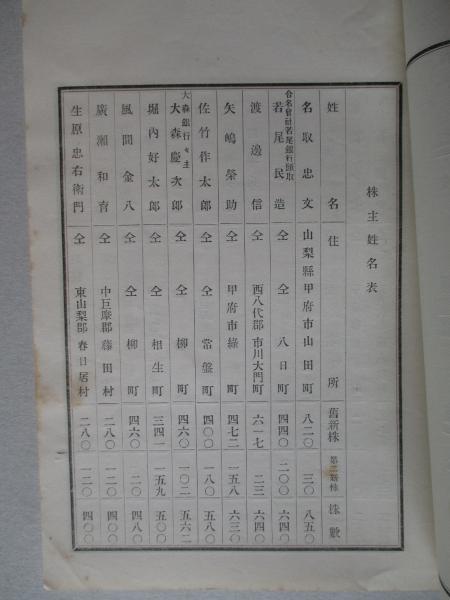 株主姓名表
姓名 住所 舊新株 第二新株 株數
名取忠文 山梨縣甲府市山田町 八二〇 三〇 八五〇
合名會社若尾銀行頭取 若尾民造 仝 仝 八日町 四四〇 二〇〇 六四〇
渡邊信 仝 西八代郡市川大門町 六一七 二三 六四〇
矢嶋榮助 仝 甲府市綠町 四七二 一五八 六三〇
佐竹作太郎 仝 仝 常盤町 四〇〇 一八〇 五八〇
大森銀行々主 大森慶次郎 仝 仝 柳町 四六〇 一〇二 五六二
堀内好太郎 仝 仝 相生町 三四一 一五九 五〇〇
風間金八 仝 仝 柳町 四六〇 二〇 四八〇
廣瀬和育 仝 中巨摩郡藤田村 二八〇 一二〇 四〇〇
生原忠右衛門 仝 東山梨郡春日居村 二八〇 一二〇 四〇〇